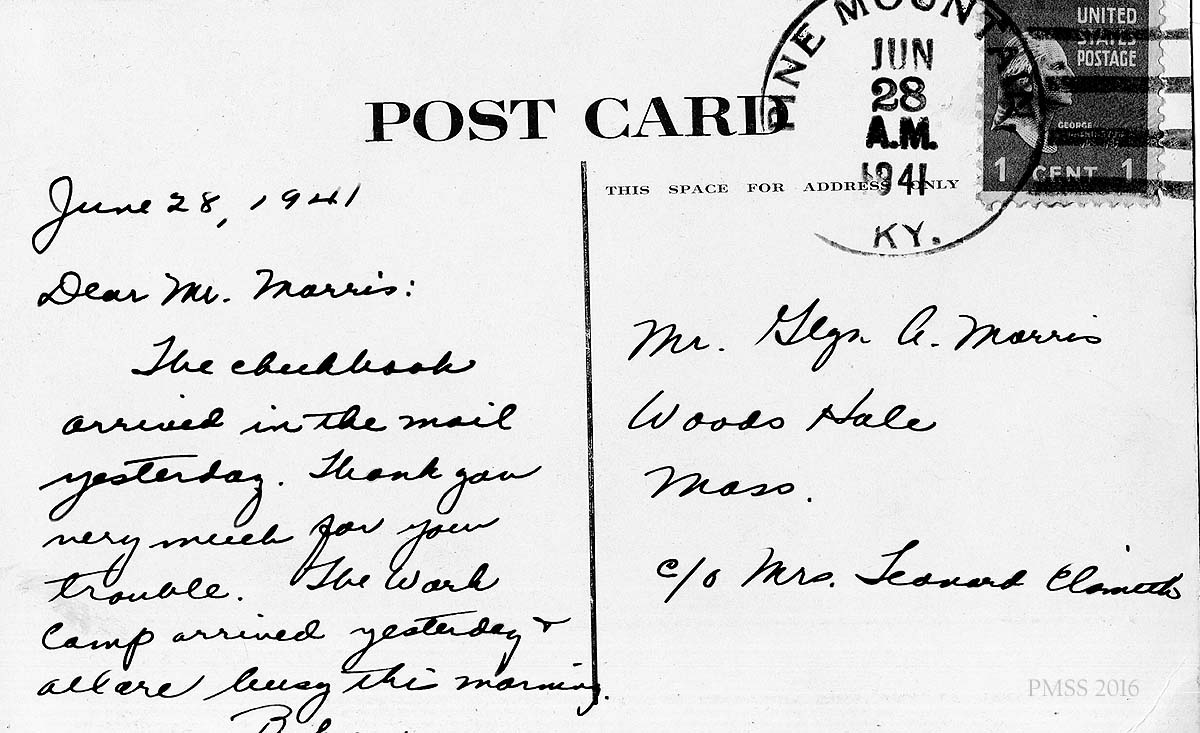 POST CARD
THIS SPACE FOR ADDRESS ONLY
PINE MOUNTAIN
JUN
28
A.M.
1941
KY.
UNITED
STATES
POSTAGE
GEORGE
WASHINGTON
1 CENT 1
June 28, 1941
Dear Mr. Morris:
The checkbook
arrived in the mail
yesterday. Thank you
very much for your
trouble. The Work
Camp arrived yesterday &
all are busy this morning.
Mr. Glyn A. Morris
Woods Hole
Mass.
c/o Mrs. Leonard
PMSS 2016